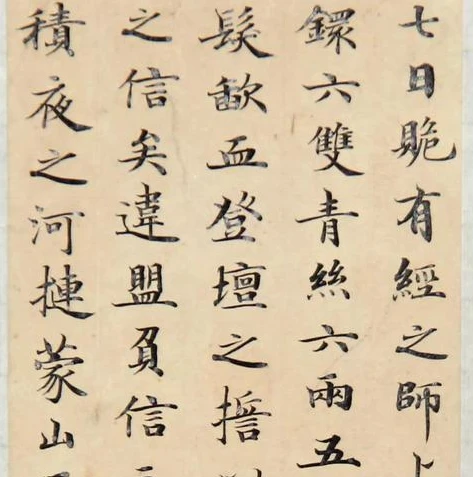 七日贶有經之師上
鐶六雙青絲六兩五
髮歃血登壇之㩊
之信矣違盟負信
積夜之河摙蒙山